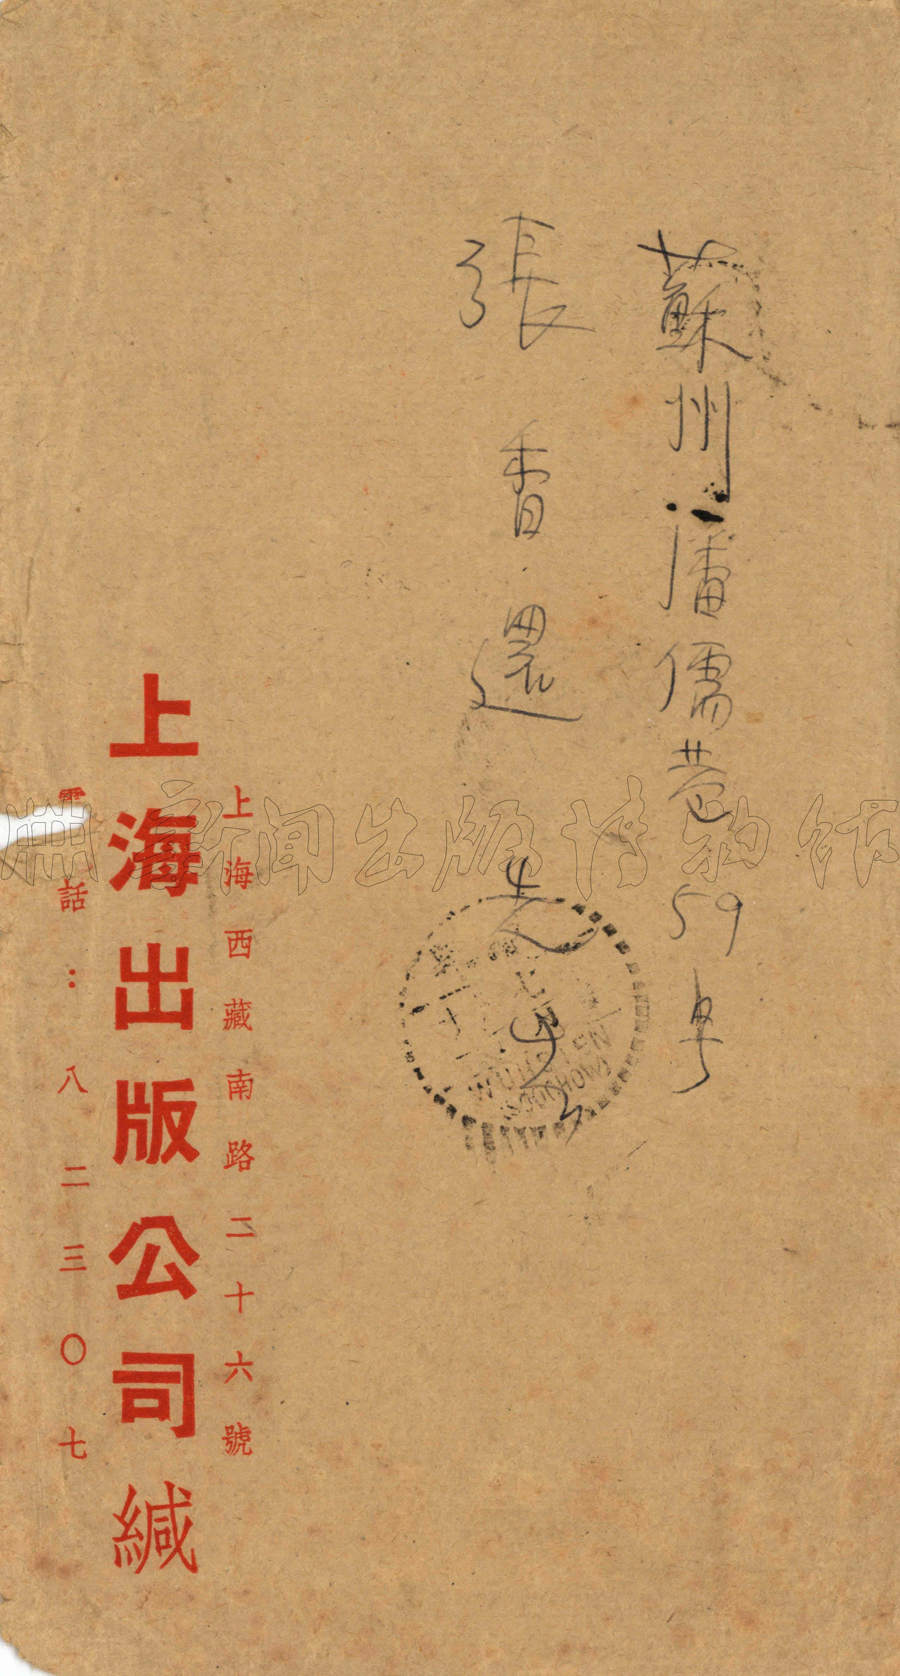 蘇州潘儒巷59号
張香還先生
上海西藏南路二十六號
上海出版公司緘
電話：八二三〇七
新聞出版博物館